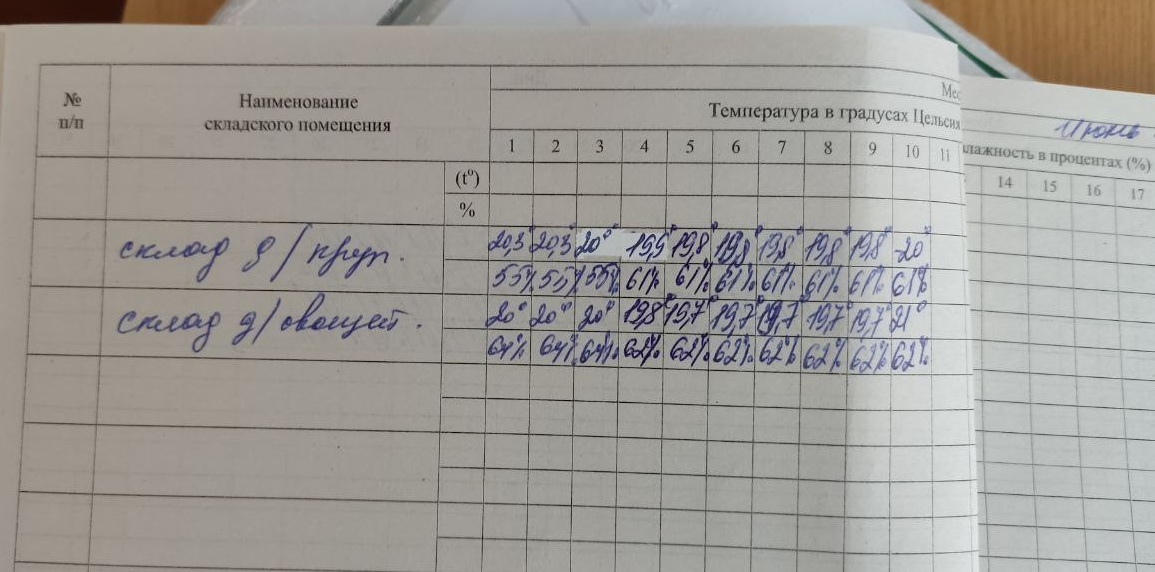 № п/п
Наименование складского помещения
Мес
Температура в градусах Цельсия
июнь
влажность в процентах (%)
1 2 3 4 5 6 7 8 9 10 11 14 15 16 17
(t°)
%
склад д/круп. 20,3° 20,3 20° 19,9 19,8° 19,8° 19,8° 19,8° 19,8° 20°
55% 55% 55% 61% 61% 61% 61% 61% 61% 61%
склад д/овощей. 20° 20° 20° 19,8° 19,7° 19,7° 19,7° 19,7° 19,7° 21°
64% 64% 64% 62% 62% 62% 62% 62% 62% 62%